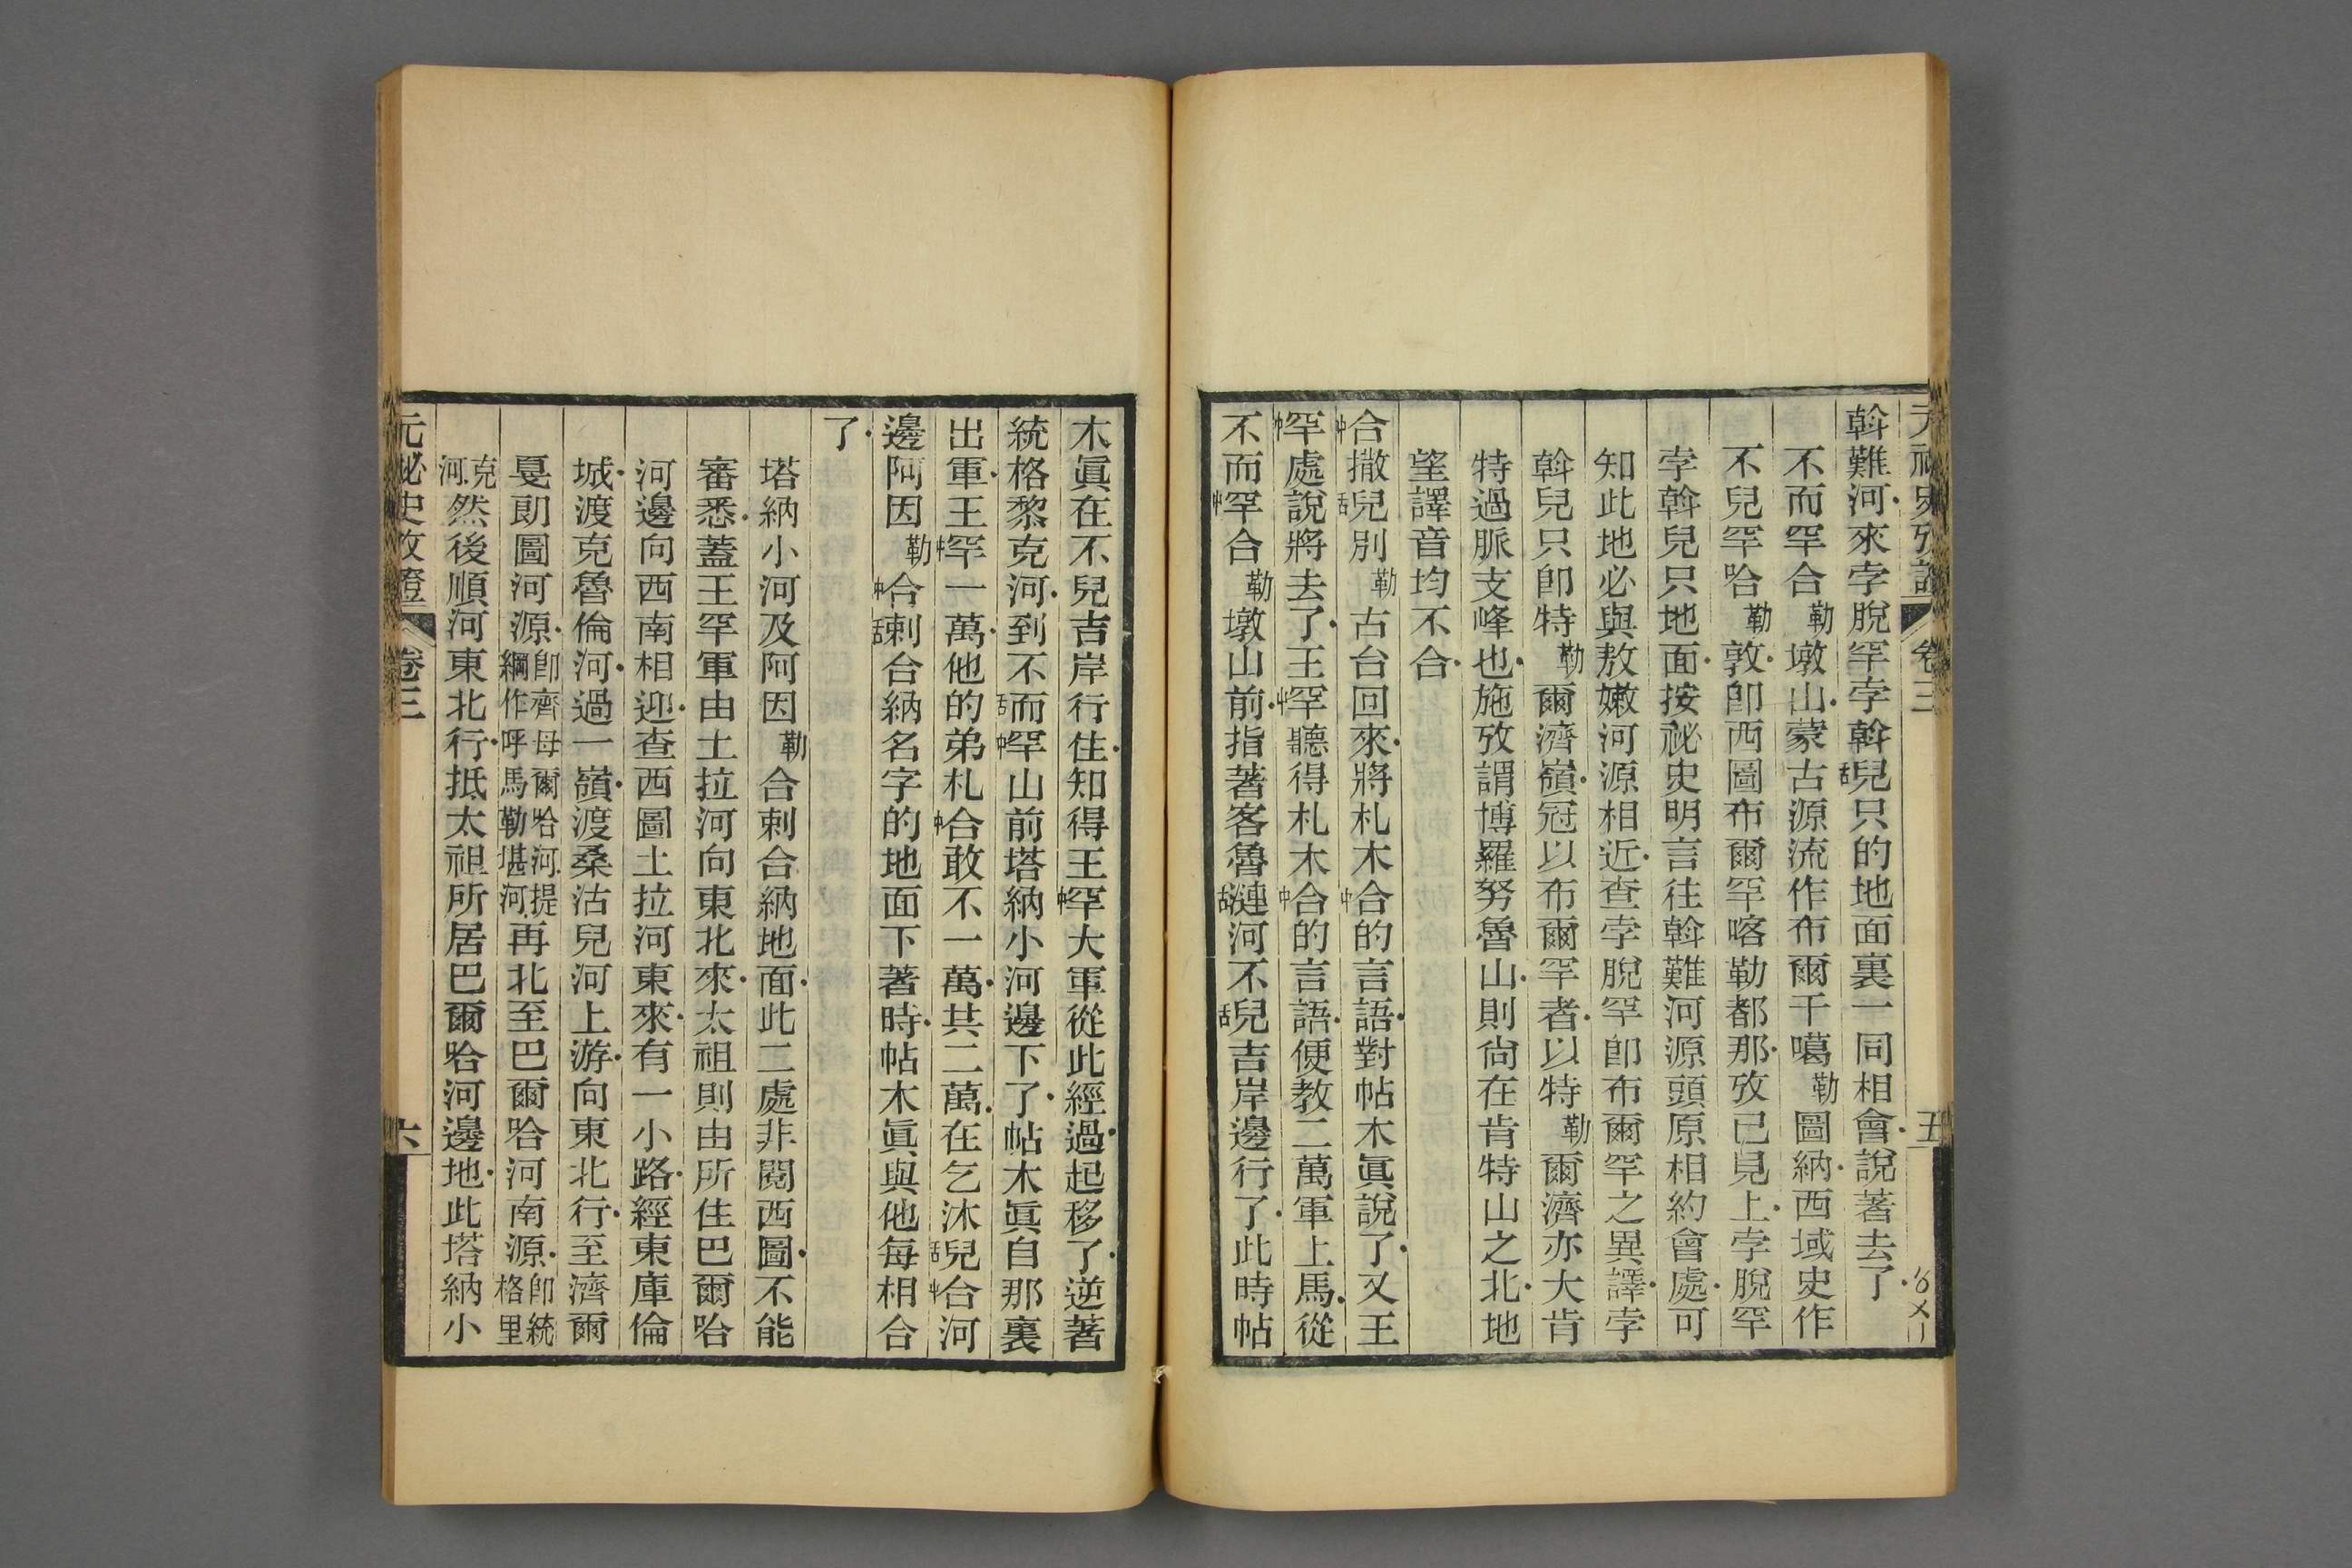 元祕史攷證 卷三 五
斡難河來孛脫罕孛斡兒只的地面裏一同相會說著去了
不而罕合勒墩山蒙古源流作布爾干噶勒圖納西域史作
不兒罕哈勒敦卽西圖布爾罕喀勒都那攷已見上孛脫罕
孛斡兒只地面按祕史明言往斡難河源頭原相約會處可
知此地必與敖嫩河源相近查孛脫罕卽布爾罕之異譯孛
斡兒只卽特勒爾濟嶺冠以布爾罕者以特勒爾濟亦大肯
特過脈支峰也施攷謂博羅努魯山則尙在肯特山之北地
望譯音均不合
中合撒舌兒別勒古台回來將札木中合的言語對帖木眞說了又王
中罕處說將去了王中罕聽得札木中合的言語便教二萬軍上馬從
不而中罕合勒墩山前指著客魯舌漣河不舌兒吉岸邊行了此時帖
木眞在不兒吉岸行住知得王中罕大軍從此經過起移了逆著
統格黎克河到不舌而中罕山前塔納小河邊下了帖木眞自那裏
出軍王中罕一萬他的弟札中合敢不一萬共二萬在乞沐舌兒中合河
邊阿因勒中合舌剌台納名字的地面下著時帖木眞與他每相合
了
塔納小河及阿因勒合剌合納地面此二處非閱西圖不能
審悉蓋王罕軍由土拉河向東北來太祖則由所住巴爾哈
河邊向西南相迎查西圖土拉河東來有一小路經東庫倫
城渡克魯倫河過一嶺渡桑沽兒河上游向東北行至濟爾
戛朗圖河源卽齊母爾哈河提綱作呼馬勒堪河再北至巴爾哈河南源卽統格里
克河然後順河東北行抵太祖所居巴爾哈河邊地此塔納小
元祕史攷證 卷三 六